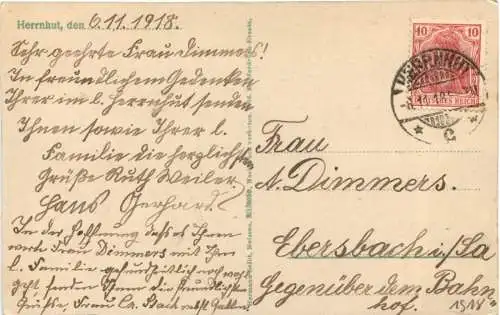 Herrnhut, den 6.11.1918.
Sehr geehrte Frau Dimmers!
In freundlichem Gedenken
Ihrer im l. Herrnhut senden
Ihnen sowie Ihrer l.
Familie die herzlichsten
Grüße Ruth Weiler.
Hans Gerhard.
In der Hoffnung daß es Ihnen
werte Frau Dimmers mit Ihrer
l. Familie gesundheitlich noch
geht, senden Ihnen die freundlichsten
Grüße, Frau nebst Gatten.
10 10
HERRNHUT
DEUTSCHES REICH
* c *
Frau
A. Dimmers.
Ebersbach i/Sa
Gegenüber dem Bahn-
hof.
1918